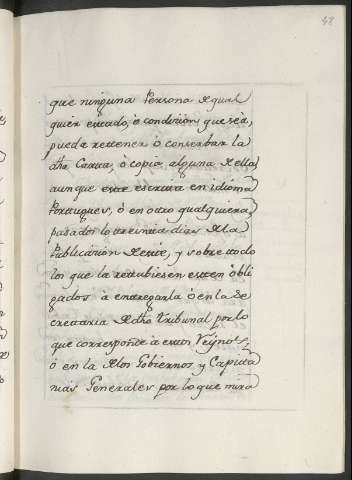 48
que ninguna Persona de qual
quier estado, o condicion que séa,
pueda rettener ò conserbar la
dha Cartta, ò copia alguna de ella
aunque estte escritta en idioma
Porttugues, ó en otro qualquiera,
pasados los treinta dias de la
Publicacion de estte, y sobre ttodo
los que la rettubiesen esten obli
gados à entregarla ó en la Se
crettaria de dho tribunal por lo
que corresponde à estos Reynos,
ó en la de los Gobiernos, y Capitta
nias Generales por lo que mira